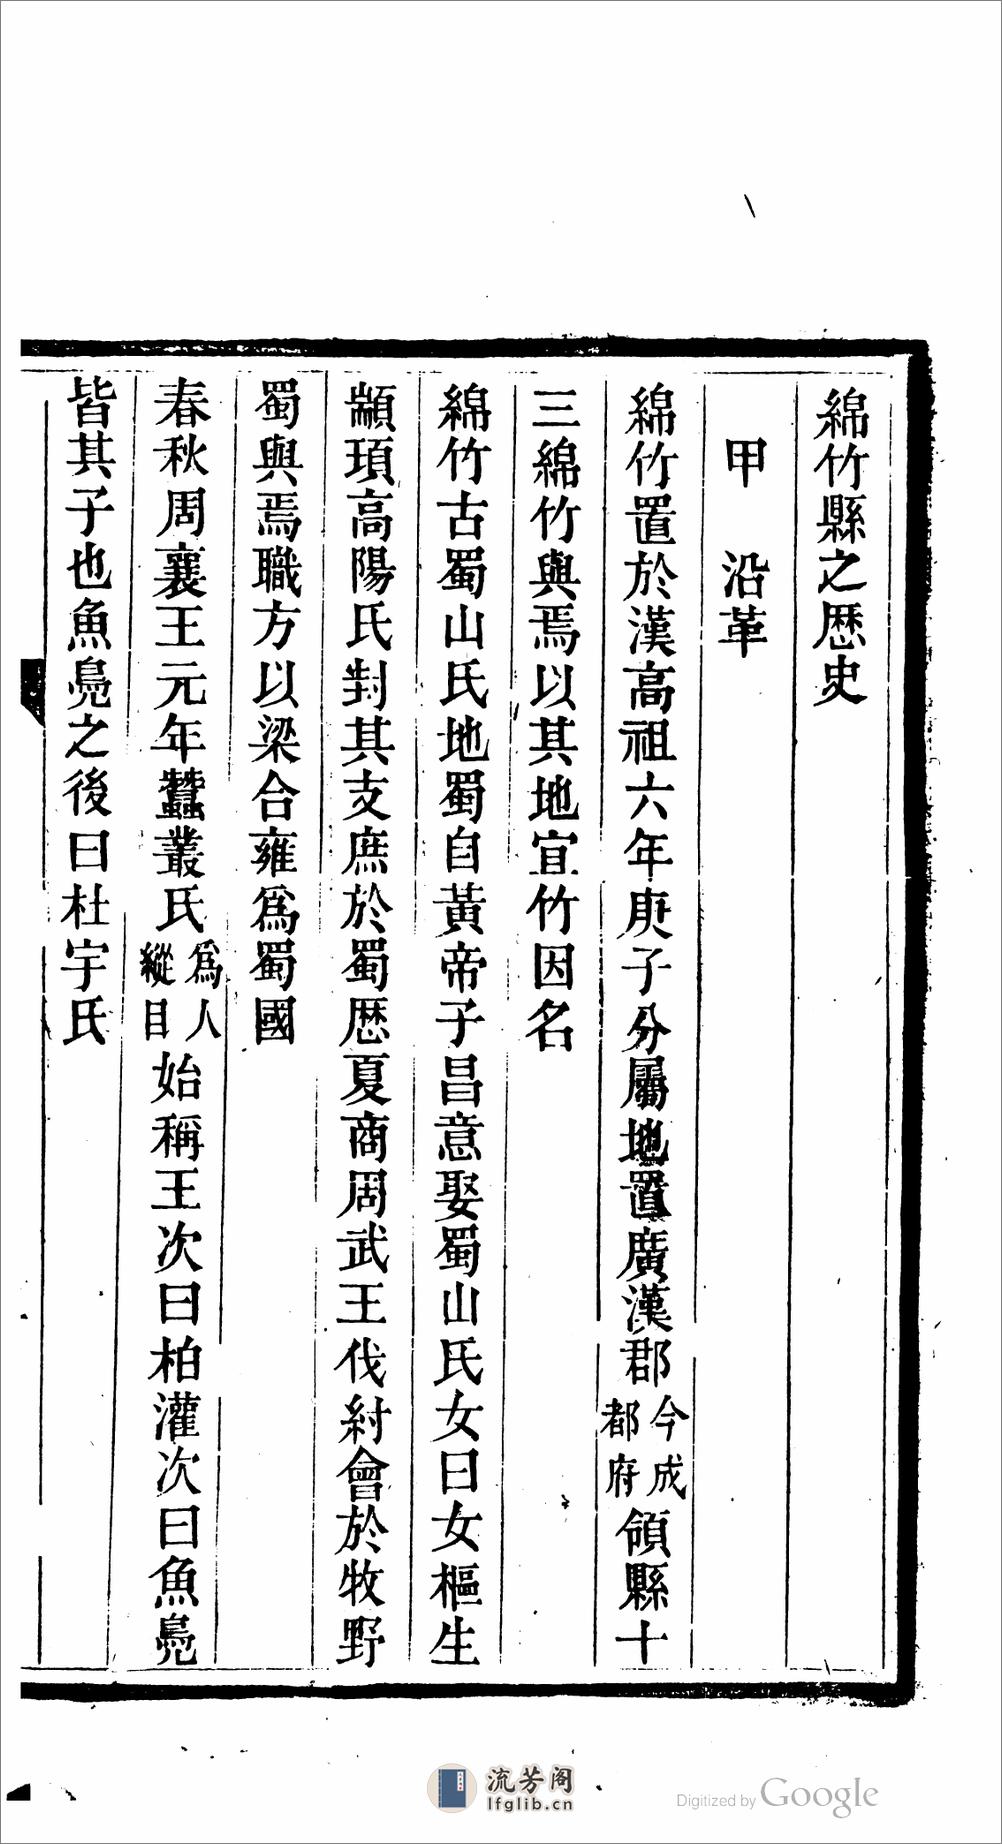 綿竹縣之歴史
甲　沿革
綿竹置於漢高祖六年庚子分屬地置廣漢郡今成都府領縣十
三綿竹與焉以其地宜竹因名
綿竹古蜀山氏地蜀自黃帝子昌意娶蜀山氏女曰女樞生
顓頊高陽氏封其支庶於蜀歴夏商周武王伐紂會於牧野
蜀與焉職方以梁合雍爲蜀國
春秋周襄王元年蠶叢氏爲人縱目始稱王次曰柏灌次曰魚鳧
皆其子也魚鳧之後曰杜宇氏
流芳阁
lfglib.cn
Digitized by Google